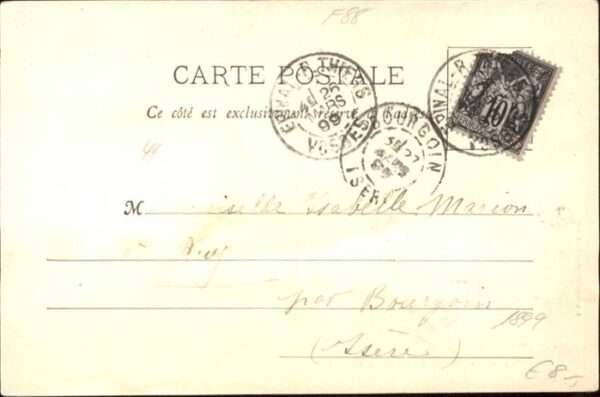 F88
CARTE POSTALE
Ce côté est exclusivement réservé à l'adresse
EPINAL-R. THIERS
26
MARS
99
VOSGES
BOURGOIN
27
ISERE
EPINAL-R.
10
M iselle Isabelle Marion
à
par Bourgoin
(Isère)
1899
€8-